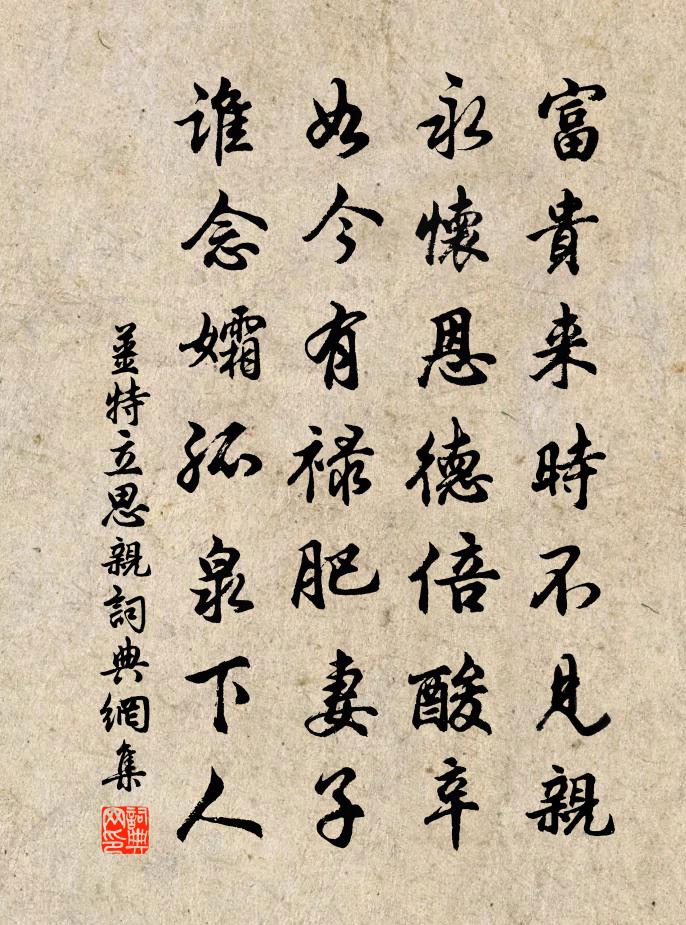 富貴来時不見親
永懷恩德倍酸辛
如今有祿肥妻子
誰念孀孤泉下人
姜特立思親詞典網集
詞典網印